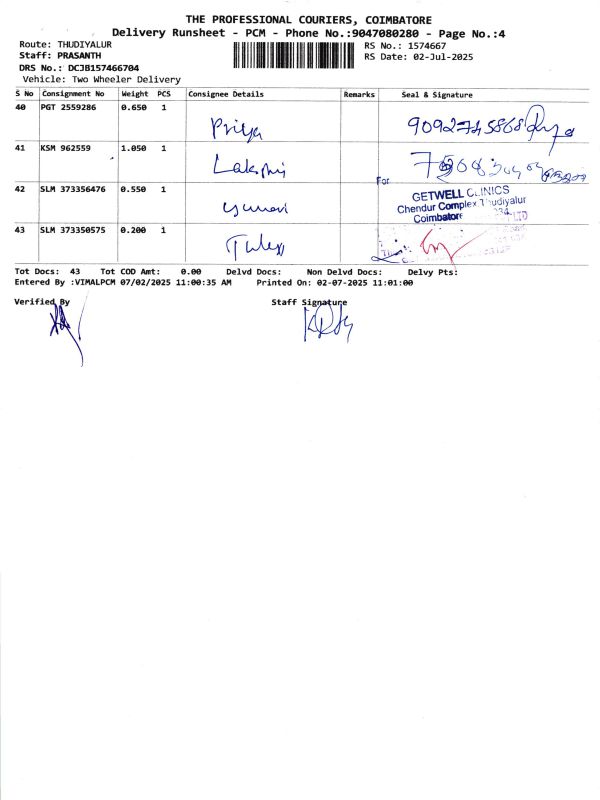 THE PROFESSIONAL COURIERS, COIMBATORE
Delivery Runsheet - PCM - Phone No.:9047080280 - Page No.:4
Route: THUDIYALUR RS No.: 1574667
Staff: PRASANTH RS Date: 02-Jul-2025
DRS No.: DCJB157466704
Vehicle: Two Wheeler Delivery
S No Consignment No Weight PCS Consignee Details Remarks Seal & Signature
40 PGT 2559286 0.650 1 Priya
41 KSM 962559 1.050 1 Lakshmi
42 SLM 373356476 0.550 1
For GETWELL CLINICS
Chendur Complex Thudiyalur
Coimbatore
43 SLM 373350575 0.200 1
Tot Docs: 43 Tot COD Amt: 0.00 Delvd Docs: Non Delvd Docs: Delvy Pts:
Entered By :VIMALPCM 07/02/2025 11:00:35 AM Printed On: 02-07-2025 11:01:00
Verified By Staff Signature